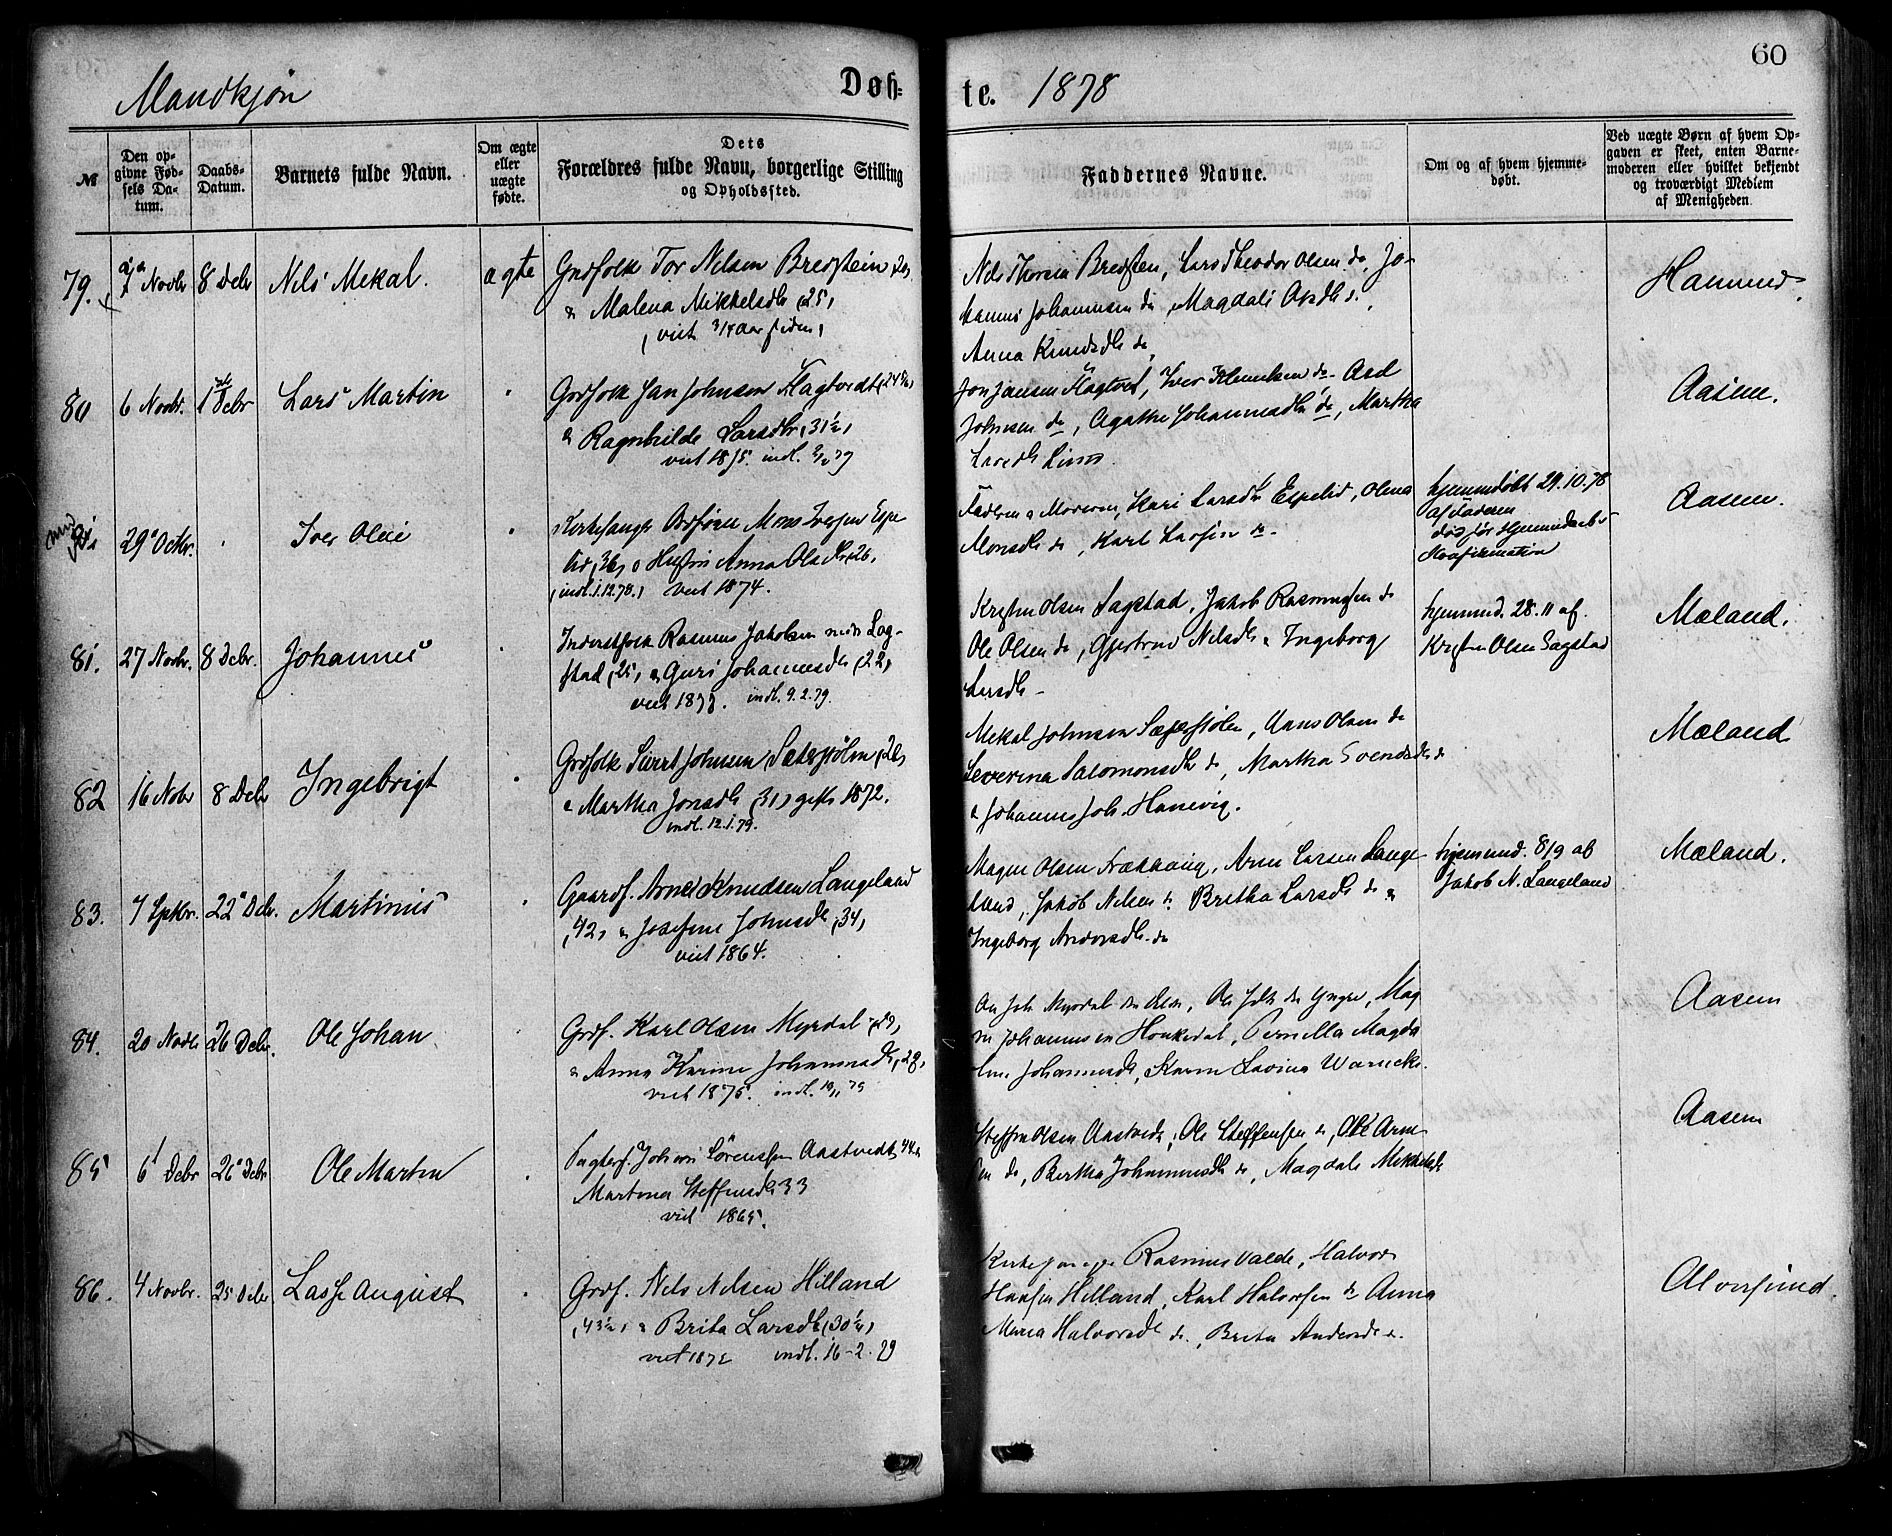 60
Mandkjøn
Døb-
te. 1878
№
Den op-
givne Fød-
sels Da-
tum.
Daabs-
Datum.
Barnets fulde Navn.
Om ægte
eller
uægte
fødte.
Dets
Forældres fulde Navn, borgerlige Stilling
og Opholdssted.
Faddernes Navne.
Om og af hvem hjemme-
døbt.
Ved uægte Børn af hvem Op-
gaven er skeet, enten Barne-
moderen eller hvilket bekjendt
og troværdigt Medlem
af Menigheden.
79. Novbr 8 Debr Nils Mekal. ægte Grdfolk Tor Nilsen Bredstein
& Malena Mikkelsdtr (25)
viet 3/4 aar siden
Lars Theodor Olsen do, Jo-
hannes Johannesen do, Magdali
Anna Knudsdtr do
Hammer
80 6 Novbr. 1 Debr Lars Martin
Grdfolk Jan Johnsen Flagtvedt
& Ragnhilde Larsdtr (31½)
viet 1875. indl.
Jon Jansen Flagtvedt, Iver do
Johnsen do, Agathe Johannesdtr do, Martha
Larsdtr
Aasem.
29 Octbr. Iver Olai
Kirkesanger Mons Iversen Espe
lid (36) & Hustru Anna Olsdtr (26)
(indl. 1.12.78.) viet 1874.
Faderen & Moderen, Kari Larsdtr Espelid, Olena
Monsdtr do, Karl Larsen do
hjemmedøbt 29.10.78
af Faderen
død før Hjemmedaabs
Konfirmation
Aasem.
81. 27 Novbr. 8 Debr. Johannes
Inderstfolk Rasmus Jakobsen Sag-
stad (25) & Guri Johannesdtr (22)
viet 1877. indl. 9.2.79.
Kristen Olsen Sagstad, Jakob Rasmussen do
Ole Olsen do, Gjertrud Nilsdtr & Ingeborg
Larsdtr
hjemmed. 28.11 af
Kristen Olsen Sagstad
Mæland.
82 16 Nobr 8 Debr Ingebrigt
Grdfolk Sivert Johnsen Sætesjølen
& Martha Jonsdtr (31) gifte 1872.
indl. 12.1.79.
Mekal Johnsen Hans Olsen do
Severina Salomonsdtr do, Martha Svendsdtr do
& Johannes Joh. Hanevig.
Mæland
83. 7 Septbr. 22 Debr. Martinus
Gaardf. Arne Knudsen Langeland
(42) & Josefine Johnsdtr (34)
viet 1864.
Magne Olsen Arne Larsen Lange
land, Jakob Nilsen do Bretha Larsdtr do &
Ingeborg Andersdtr do
hjemmed. 8/9 af
Jakob N. Langeland
Mæland.
84. 20 Novbr 26 Debr. Ole Johan
Grdf. Karl Olsen Myrdal
& Anna Karine Johannesdtr
viet 1875. indl.
Ole Joh. Myrdal den Ældre, Ole do Yngre, Mag
ne Johannesen Houkedal, Pernilla Magda
lene Johannesdtr, Karen Lovina Warncke.
Aasem
85 6 Debr 26 Debr Ole Martin
Johan Sørensen Aastvedt 44
Martina Steffensdtr 33
viet 1865.
Steffen Olsen Aastvedt, Ole Steffensen do, Ole Arne
sen do, Bertha Johannesdtr do, Magdali Mikkelsdtr
Aasem
86. 4 Novbr. 25 Debr Lasse August
Grdf. Nils Nilsen Hilland
(43½) & Brita Larsdtr
viet 1872 indl. 16-2.79
Kirkesanger Rasmus Valde, Halvor
Hansen Hilland, Karl Halvorsen do Anna
Maria Halvorsdtr do, Brita Andersdtr do
Alversund.